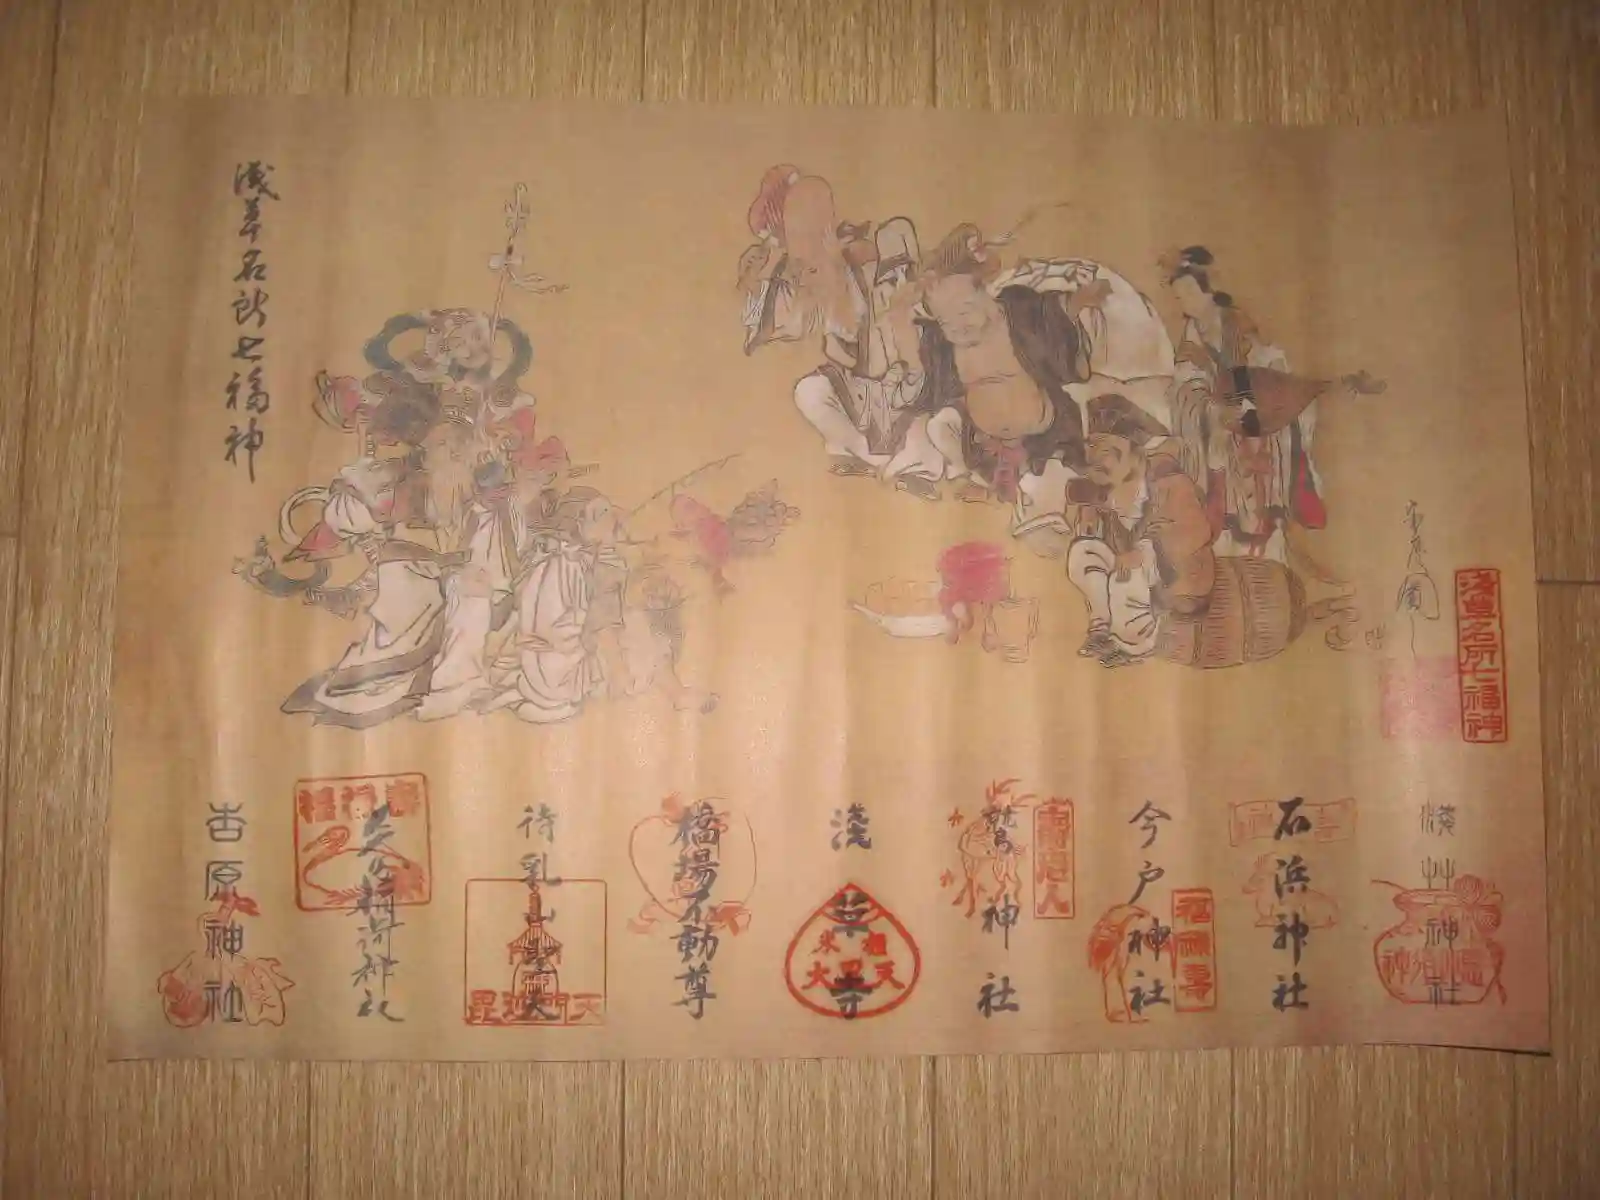 浅草名所七福神
浅草名所七福神
浅草神社
石浜神社
今戸神社
福禄寿
鷲神社
寿老人
浅草寺
米 粗
大黒天
橋場不動尊
待乳山聖天
毘沙門天
矢先稲荷神社
吉原神社